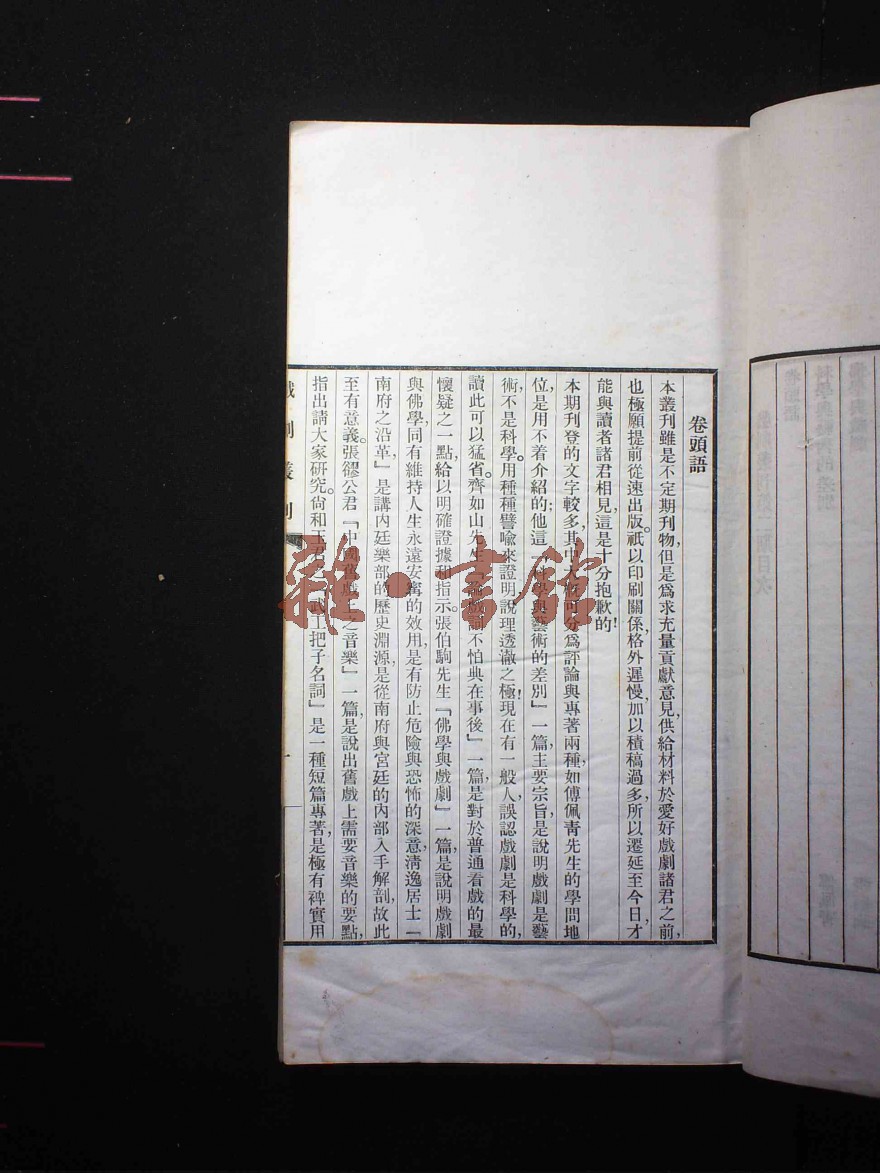 卷頭語
本叢刊雖是不定期刊物,但是爲求充量貢獻意見,供給材料於愛好戲劇諸君之前,
也極願提前從速出版。祇以印刷關係,格外遲慢,加以積稿過多,所以遷延至今日,才
能與讀者諸君相見,這是十分抱歉的!
本期刊登的文字較多,其中大概可分爲評論與專著兩種,如傅佩靑先生的學問地
位,是用不着介紹的;他這「科學與藝術的差別」一篇,主要宗旨是說明戲劇是藝
術,不是科學。用種種譬喩來證明,說理透澈之極!現在有一般人誤認戲劇是科學的,
讀此可以猛省。齊如山先生「論戲詞不怕典在事後」一篇,是對於普通看戲的最
懷疑之一點,給以明確證據和指示。張伯駒先生「佛學與戲劇」一篇,是說明戲劇
與佛學,同有維持人生永遠安寗的效用,是有防止危險與恐怖的深意,淸逸居士「
南府之沿革」是講內廷樂部的歷史淵源,是從南府與宮廷的內部入手解剖,故此
至有意義。張謬公君「中國舊戲上之音樂」一篇,是說出舊戲上需要音樂的要點,
指出請大家研究。尙和玉君之「武工把子名詞」是一種短篇專著,是極有裨實用
戲劇叢刊
一
雜·書館
科學與藝術的差別
卷頭語